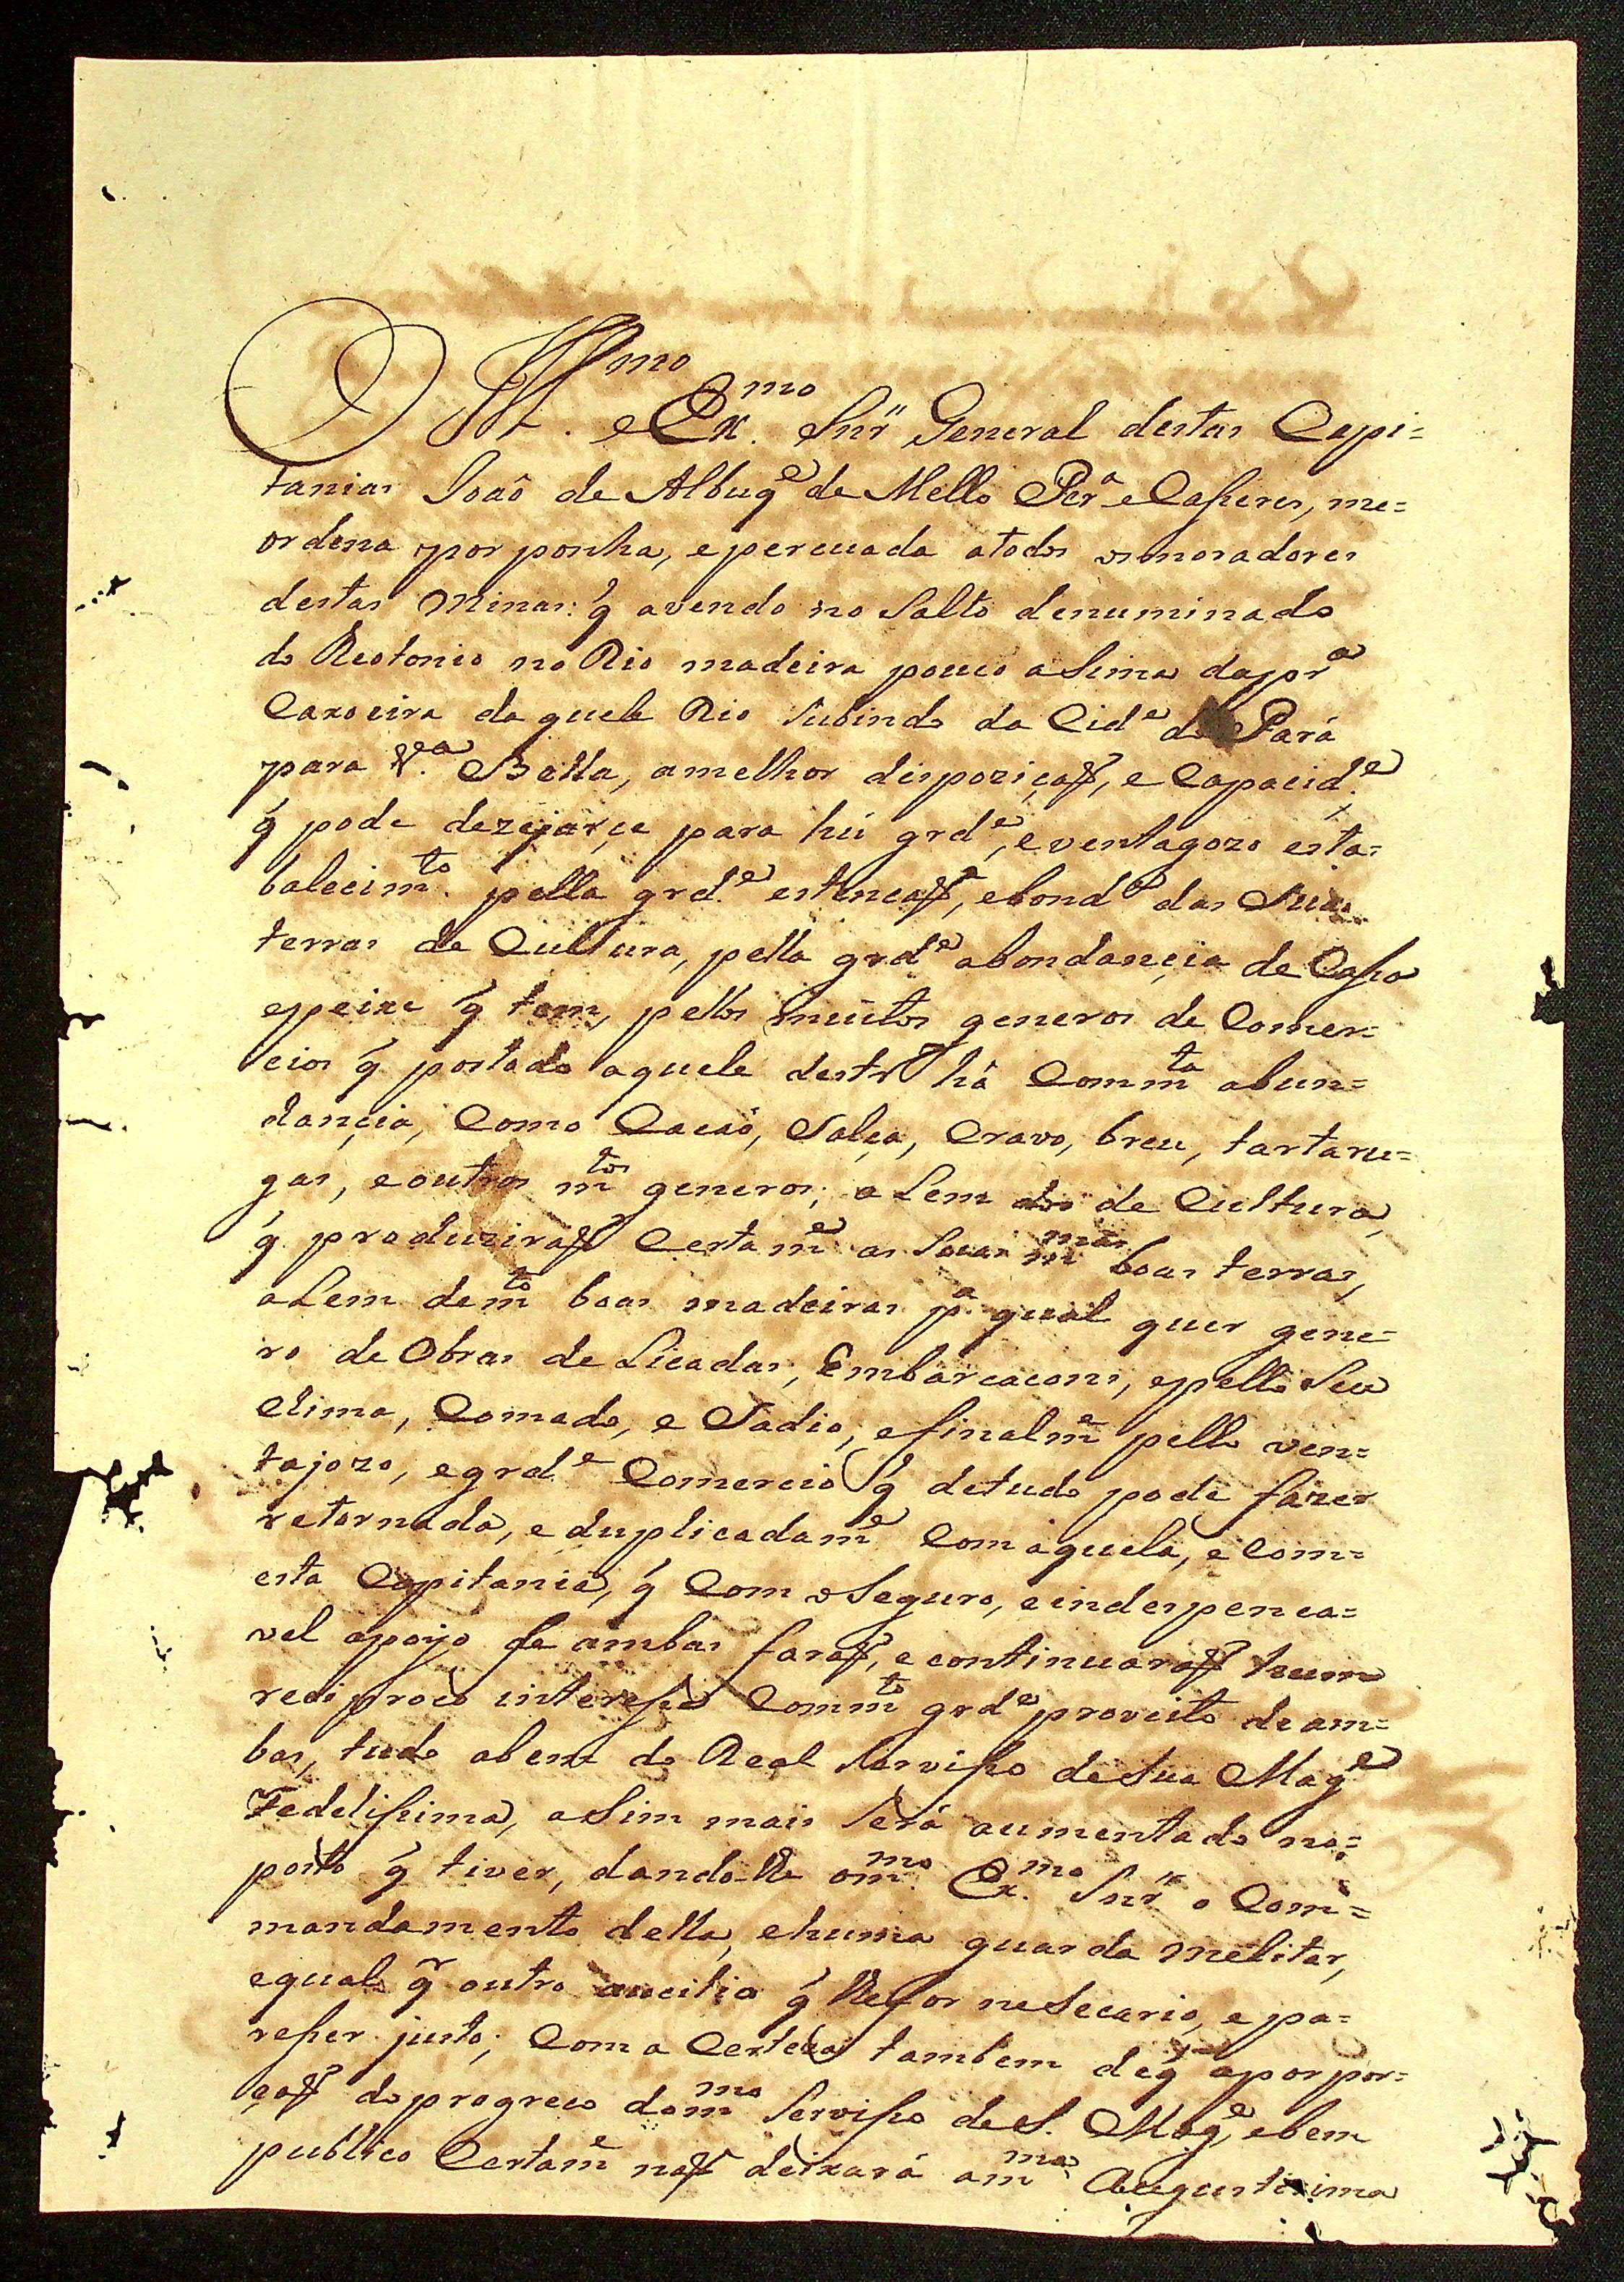 O Ill.mo e Ex.mo Snr̃ General destas Capi=
tanias Joaõ de Albuq.e de Mello Per.a e Casseres, me=
ordena porponha, epercuada atodos osmoradores
destas Minas: q̃ avendo no Salto denuminado
do Reotonio no Rio madeira pouco aSima dapr.a
Caxoeira daquele Rio Subindo da Cid.e do Pará
para V.a Bella, amelhor dispoziçaõ, e Capacid.e
q̃ pode dezejarçe para hũ grd.e, e ventagozo esta=
balecim.to pella grd.e estencaõ, ebond.e das Suas
terras de Cultura, pella grd.e abondançia de Cassa
epeixe q̃ tem, pellos muitos generos de Comer=
cios q̃ portodo aquele destr.o há Comm.ta abun=
dançia, Como Cacáo, Salça, Cravo, breu, tartaru=
gas, eoutros m.tos generos; aLem dos de Cultura,
q̃ produziraõ Certam.e as Suas m.mas boas terras,
aLem dem.to boas madeiras p.a qual quer gene=
ro de Obras deLicadas, Embarcacons, epello Seu
Clima, Comodo, e Sadio, efinalm.e pello ven=
tajozo, egrd.e Comercio q̃ detudo pode fazer
retornada, e duplicadam.e Com aquela, e Com=
esta Capitania, q̃ Com oSeguro, eindespenca=
vel apoyo de ambas faraõ, e continuaraõ hum
reciproco interesse Comm.to grd.e proveito deam=
bas, tudo abem do Real Servisso deSua Mag.e
Fedelissima, aSim mais Será aumentado no=
posto q̃ tiver, dandolhe om.mo Ex.mo Snr̃ o Com=
mandamento della, ehuma guarda melitar,
equal q.r outro aucilio q̃ lhefor neSecario, epa=
resser justo; Com a Certeza tambem deq̃ aporpor=
çaõ doprogreco dom.mo Servisso deS. Mag.e, ebem
publico Certam.e naõ deixará am.ma Augustisima